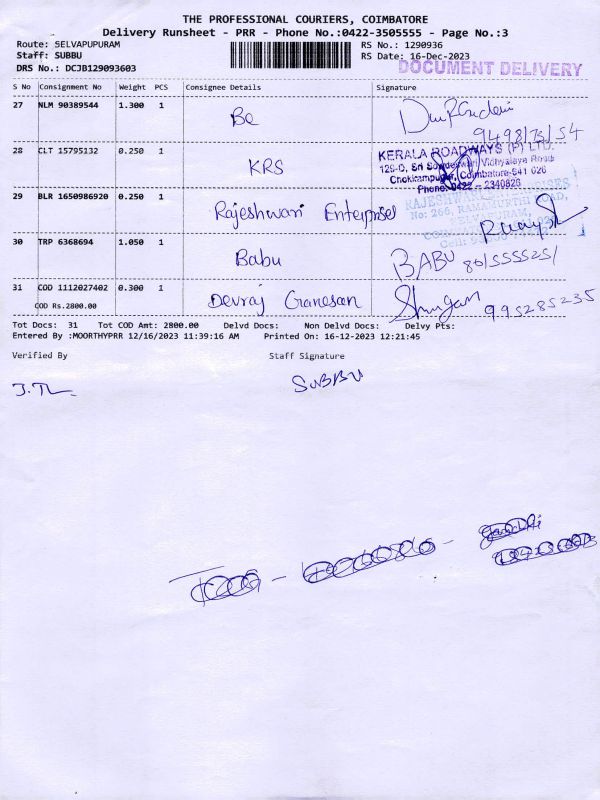 THE PROFESSIONAL COURIERS, COIMBATORE
Delivery Runsheet - PRR - Phone No.:0422-3505555 - Page No.:3
Route: SELVAPUPURAM
Staff: SUBBU
DRS No.: DCJB129093603
RS No.: 1290936
RS Date: 16-Dec-2023
DOCUMENT DELIVERY
S No Consignment No Weight PCS Consignee Details Signature
27 NLM 90389544 1.300 1 Be
28 CLT 15795132 0.250 1 KRS
KERALA ROADWAYS (P) LTD.
Chokkampudur, Coimbatore-641 026
Phone: 0422 - 2340826
29 BLR 1650986920 0.250 1 Rajeshwari Enterprises
No: 266, RAMAMURTHI ROAD,
30 TRP 6368694 1.050 1 Babu BABU
31 COD 1112027402 0.300 1 Devraj Ganesan 995285235
COD Rs.2800.00
Tot Docs: 31 Tot COD Amt: 2800.00 Delvd Docs: Non Delvd Docs: Delvy Pts:
Entered By :MOORTHYPRR 12/16/2023 11:39:16 AM Printed On: 16-12-2023 12:21:45
Verified By Staff Signature
SUBBU